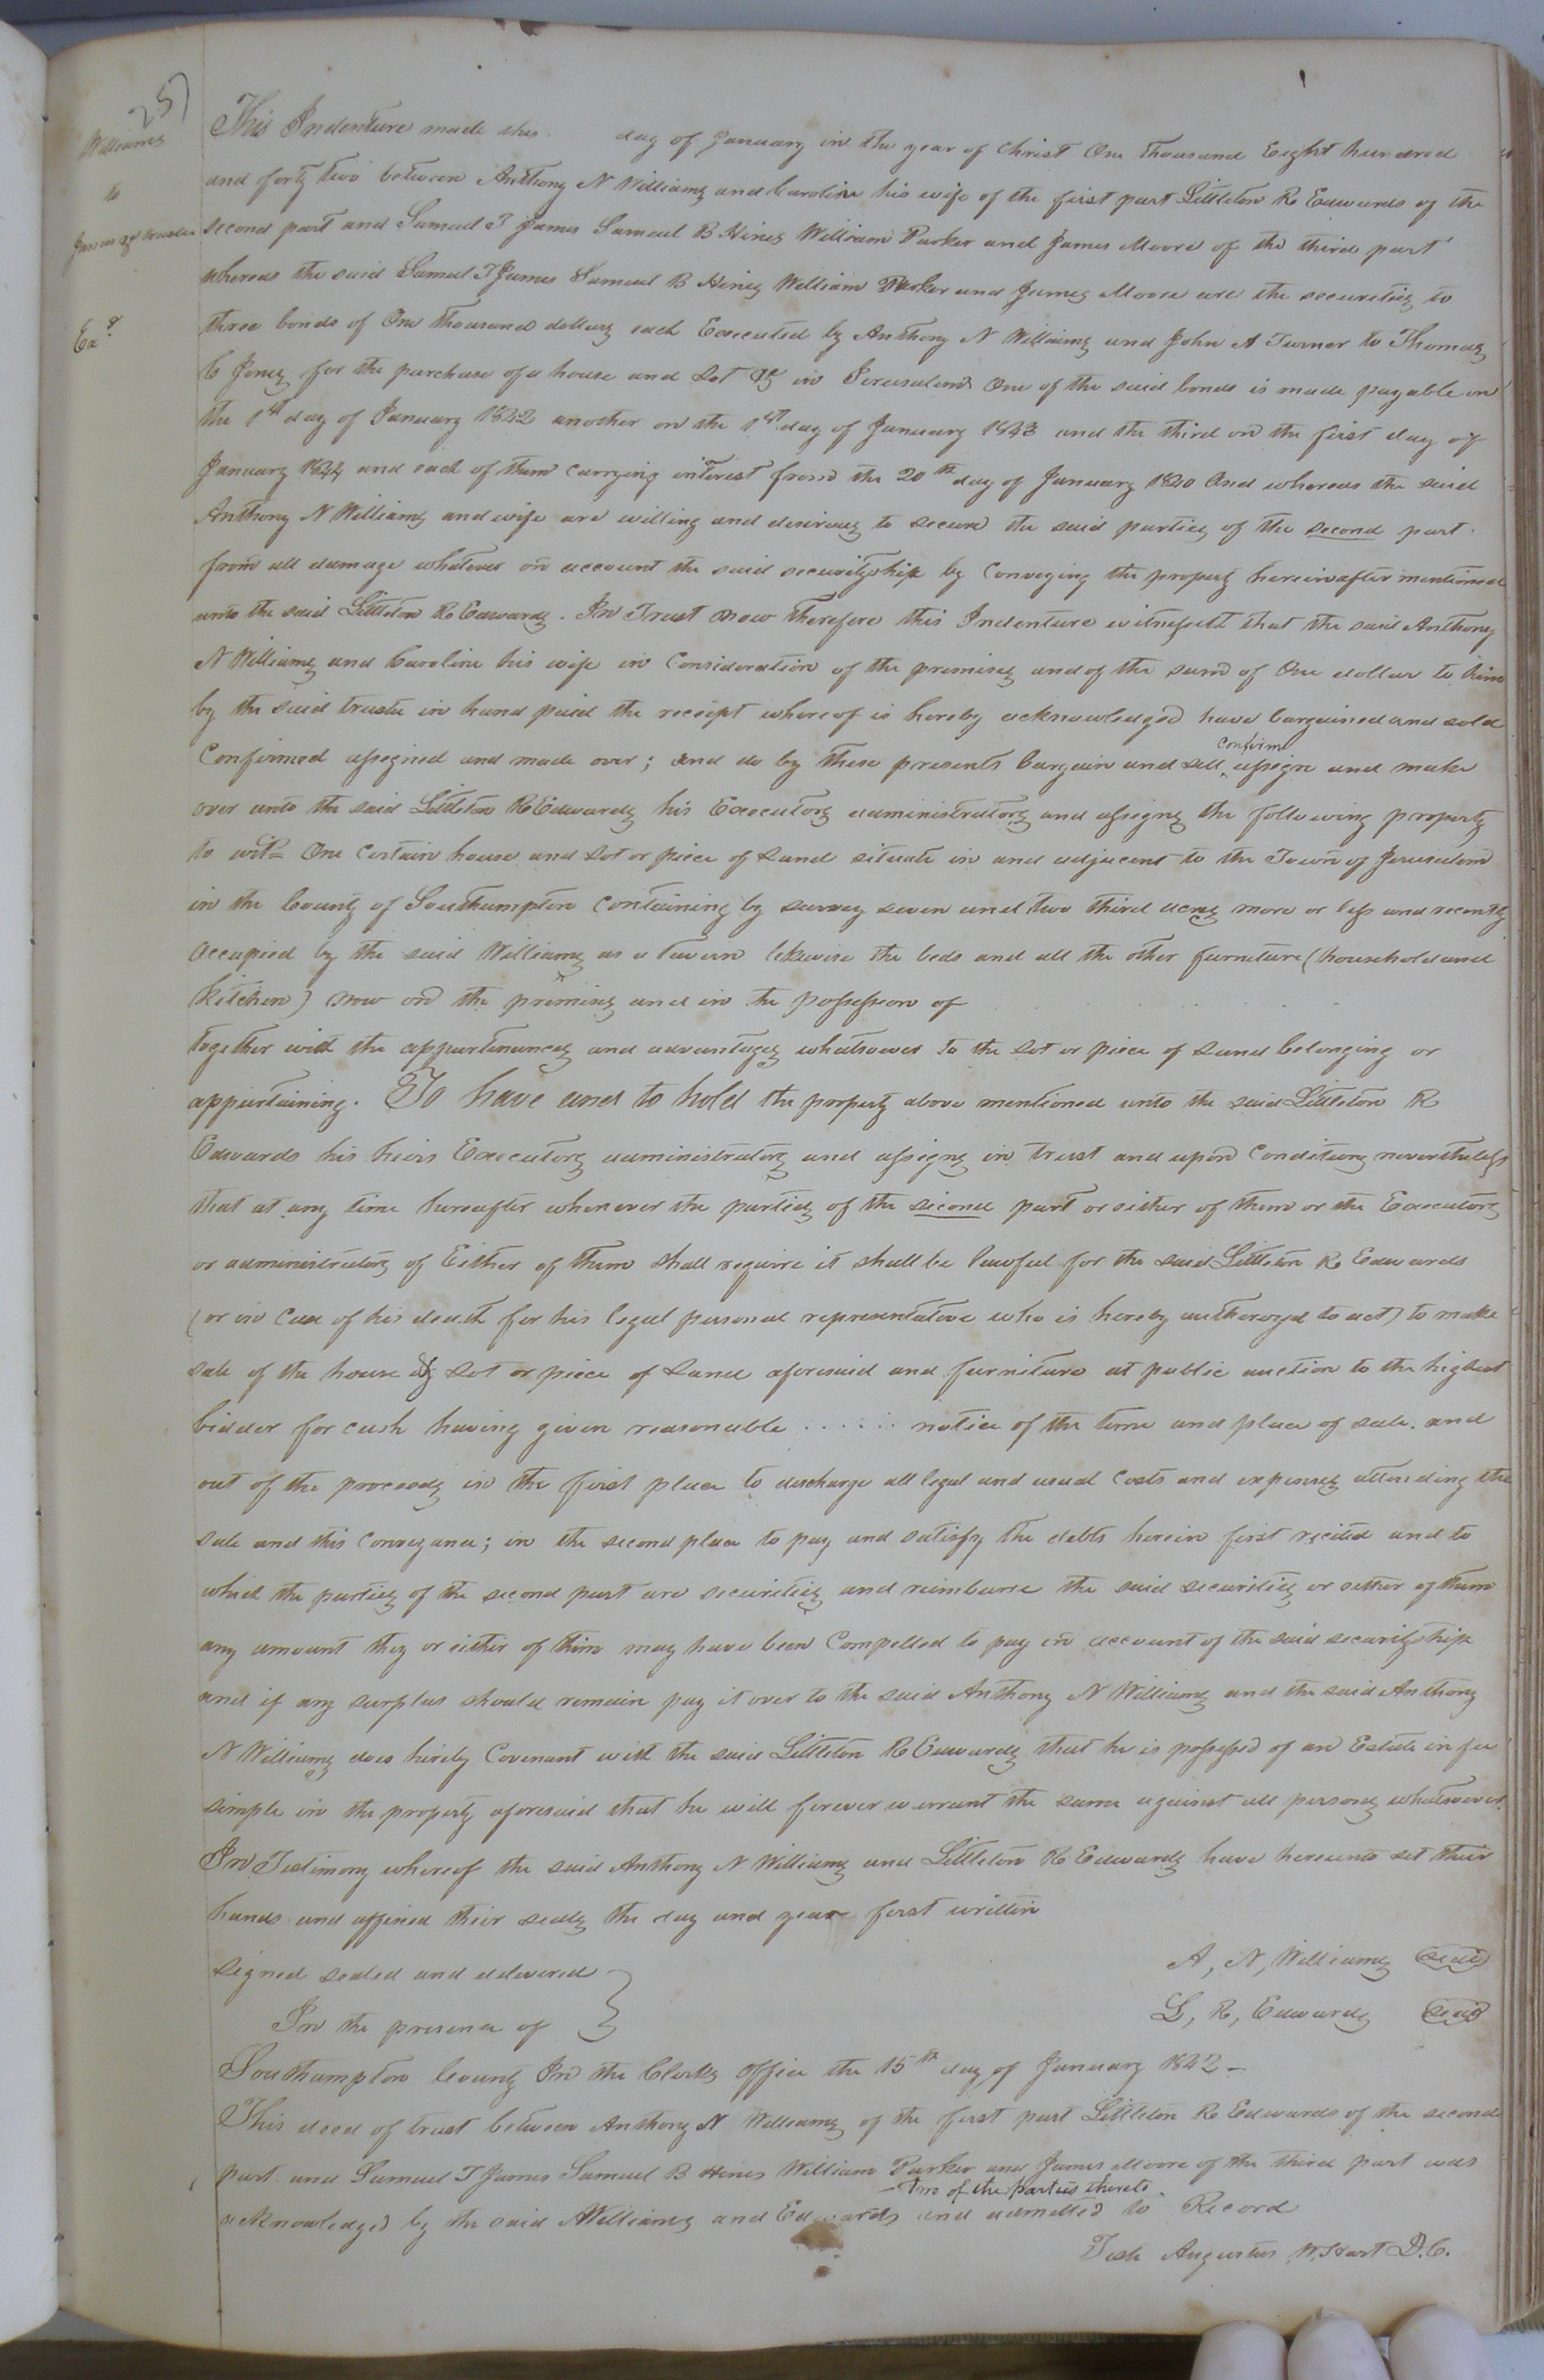 257
Williams
to
James &c trustee
Exd
This Indenture made this day of January in the year of Christ One thousand Eight hundred
and forty two between Anthony N Williams and Caroline his wife of the first part Littleton R Edwards of the
second part and Samuel T James Samuel B Hines William Parker and James Moore of the third part
whereas the said Samuel T James Samuel B Hines William Parker and James Moore are the securities to
three bonds of One thousand dollars each Executed by Anthony N Williams and John A Turner to Thomas
C Jones for the purchase of a house and Lot &c in Jerusalem One of the said bonds is made payable on
the 1st day of January 1842 another on the 1st day of January 1843 and the third on the first day of
January 1844 and each of them carrying interest from the 20th day of January 1840 And whereas the said
Anthony N Williams and wife are willing and desirous to secure the said parties of the second part
from all damage whatever on account the said securityship by Conveying the property hereinafter mentioned
unto the said Littleton R Edwards. In Trust now therefore this Indenture witnesseth that the said Anthony
N Williams and Caroline his wife in Consideration of the premises and of the sum of One dollar to him
by the said trustee in hand paid the receipt whereof is hereby acknowledged have bargained and sold
Confirmed assigned and made over; and do by these presents bargain and sell confirm assign and make
over unto the said Littleton R Edwards his Executors administrators and assigns the following property
to wit= One Certain house and Lot or piece of Land situate in and adjacent to the Town of Jerusalem
in the County of Southampton Containing by survey seven and two third acres more or less and recently
Occupied by the said Williams as a tavern likewise the beds and all the other furniture (household and
kitchen) now on the premises and in the possession of
together with the appurtenances and advantages whatsoever to the Lot or piece of Land belonging or
appurtaining. To have and to hold the property above mentioned unto the said Littleton R
Edwards his heirs Executors administrators and assigns in trust and upon Conditions nevertheless
that at any time hereafter whenever the parties of the second part or either of them or the Executors
or administrators of Either of them shall require it shall be lawful for the said Littleton R Edwards
(or in Case of his death for his legal personal representative who is hereby authorized to act) to make
sale of the house & Lot or piece of Land aforesaid and furniture at public auction to the highest
bidder for cash having given reasonable ...... notice of the time and place of sale. and
out of the proceeds in the first place to discharge all legal and usual Costs and expenses attending the
sale and this Conveyance; in the second place to pay and satisfy the debts herein first recited and to
which the parties of the second part are securities and reimburse the said securities or either of them
any amount they or either of them may have been Compelled to pay on account of the said securityship
and if any surplus should remain pay it over to the said Anthony N Williams and the said Anthony
N Williams does hereby Covenant with the said Littleton R Edwards that he is possessed of an Estate in fee
simple in the property aforesaid that he will forever warrant the same against all persons whatsoever.
In Testimony whereof the said Anthony N Williams and Littleton R Edwards have hereunto set their
hands and affixed their seals the day and year first written
signed sealed and delivered
In the presence of
A, N, Williams seal
L, R, Edwards seal
Southampton County In the Clerks Office the 15th day of January 1842 -
This deed of trust between Anthony N Williams of the first part Littleton R Edwards of the second
part and Samuel T James Samuel B Hines William Parker and James Moore of the third part was
two of the parties thereto
acknowledged by the said Williams and Edwards and admitted to Record
Teste Augustus W. Hart D.C.